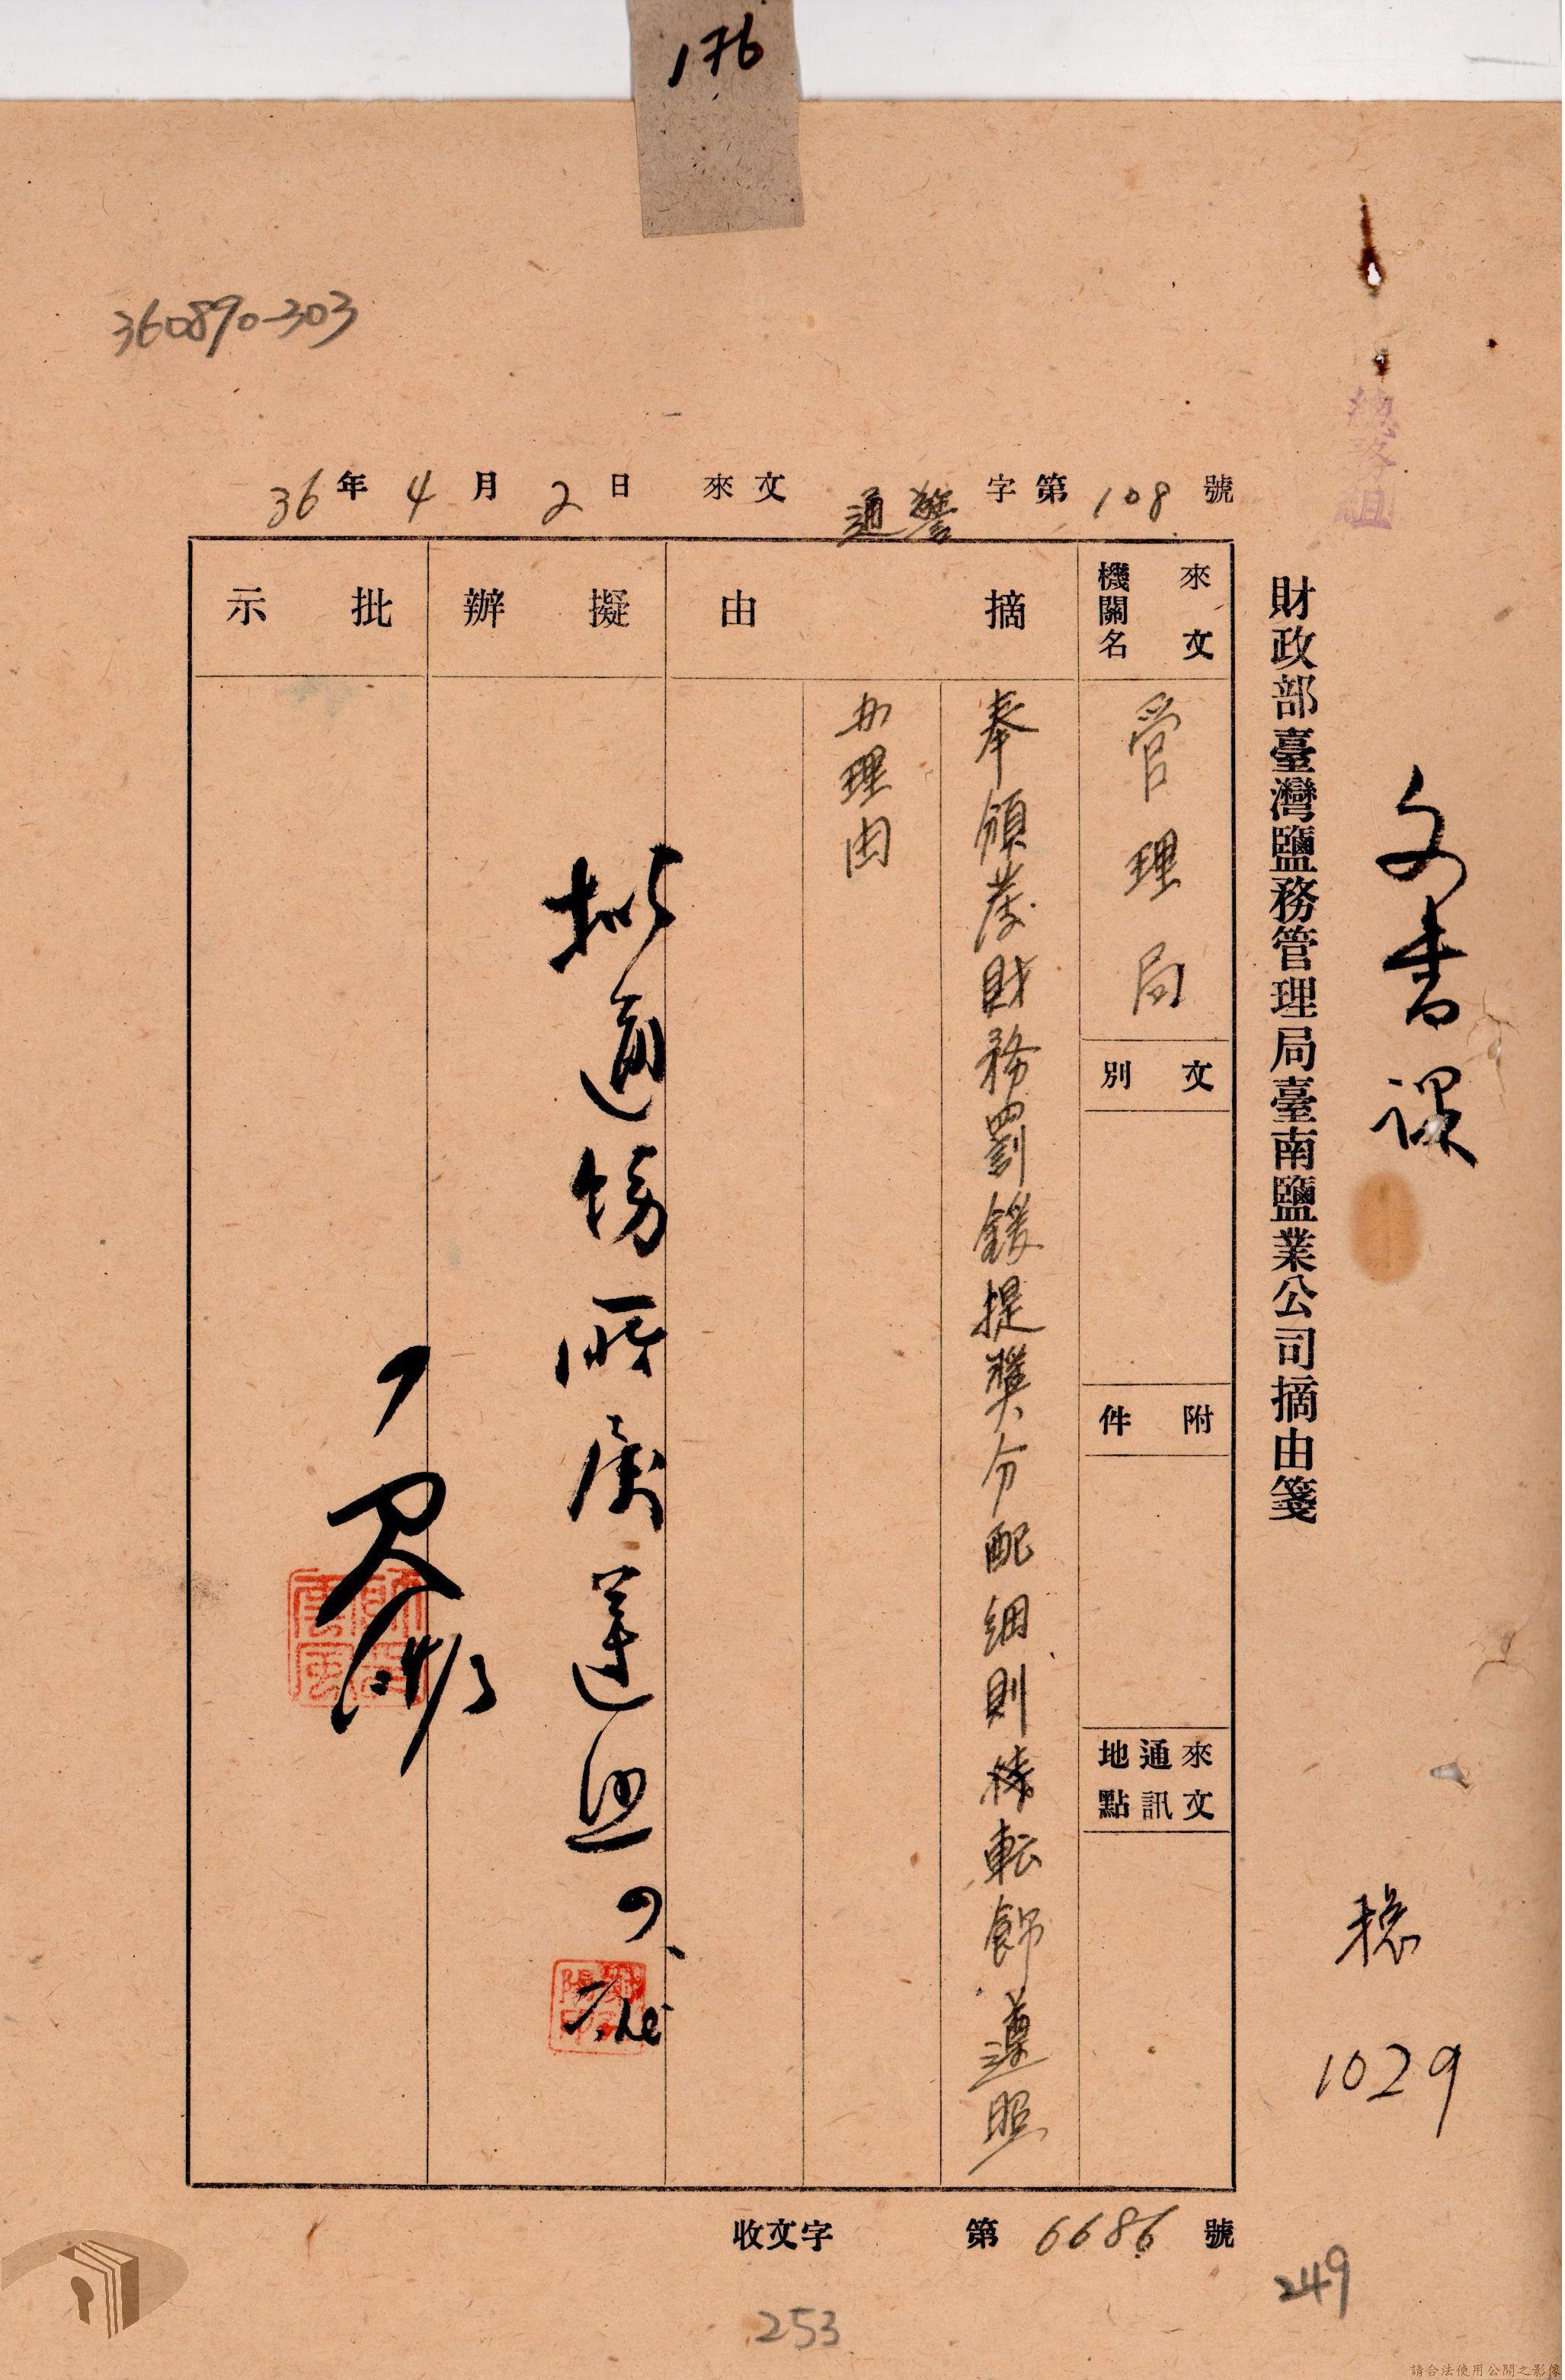 176
360890-303
總務組
文書課
稳
1029
財政部臺灣鹽務管理局臺南鹽業公司摘由箋
36年4月2日 來文 通警字第108號
來文機關名
管理局
文別
附件
來文通訊地點
摘由
奉頒發財務罰鍰提獎分配細則轉飭遵照
办理由
擬辦
拟通飭所屬遵照
批示
收文字 第6686號
249
253
請合法使用公開之影像